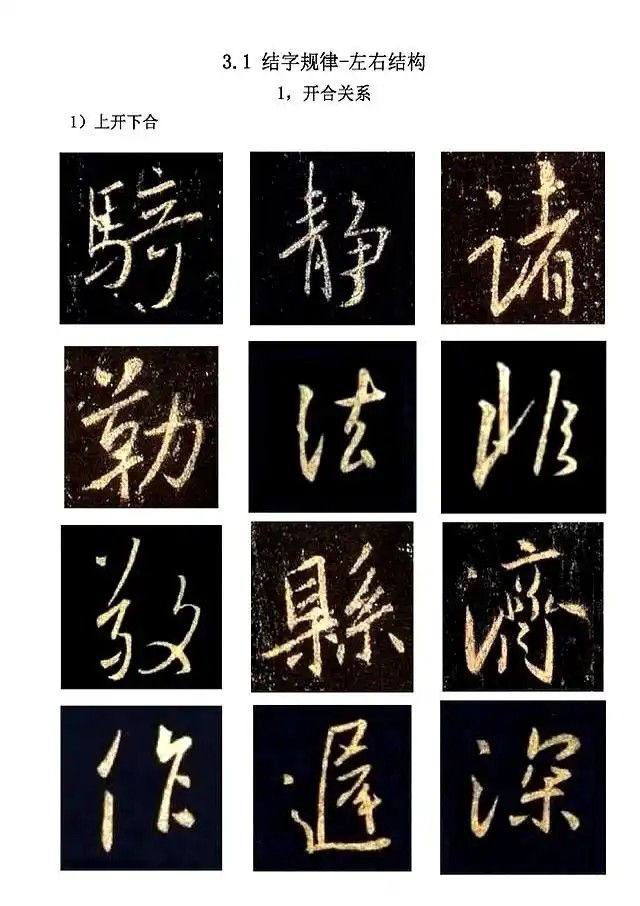 3.1 结字规律-左右结构
1，开合关系
1）上开下合
騎 静 诸
勒 法 非
敬 縣 濟
作 遲 深